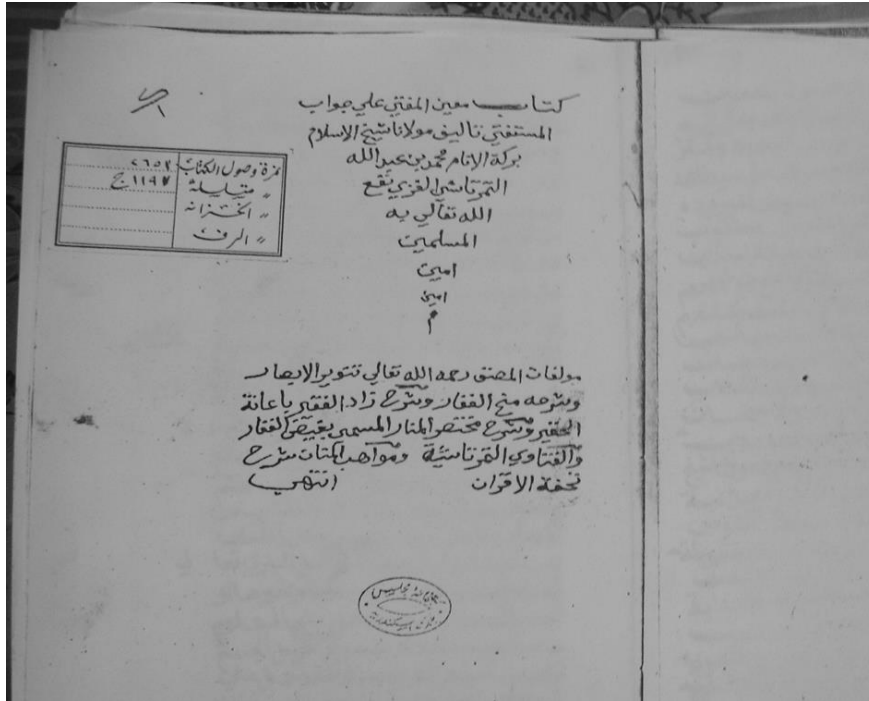 كتاب معين المفتي علي جواب
المستفتي تاليف مولانا شيخ الاسلام
بركة الانام محمد بن عبد الله
التمرتاشي الغزي نفع
الله تعالي به
المسلمين
امين
امين
م
نمرة وصول الكتاب ٢٦٥٢
〃 متسلسلة ١١٩٧ ج
〃 الخزانه
〃 الرف
مولفات المصنف رحمه الله تعالي تنوير الابصار
وشرحه منح الغفار وشرح زاد الفقير باعانة
الحقير وشرح مختصر المنار المسمي بفيض الغفار
والفتاوي التمرتاشية ومواهب المنان شرح
تحفة الاقران انتهي